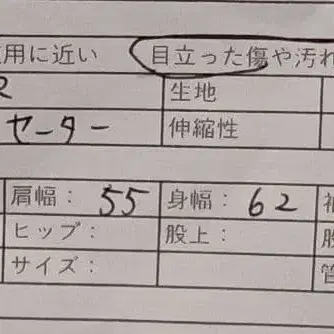 用に近い 目立った傷や汚れ
生地
セーター 伸縮性
肩幅： 55 身幅： 62
ヒップ： 股上：
サイズ：